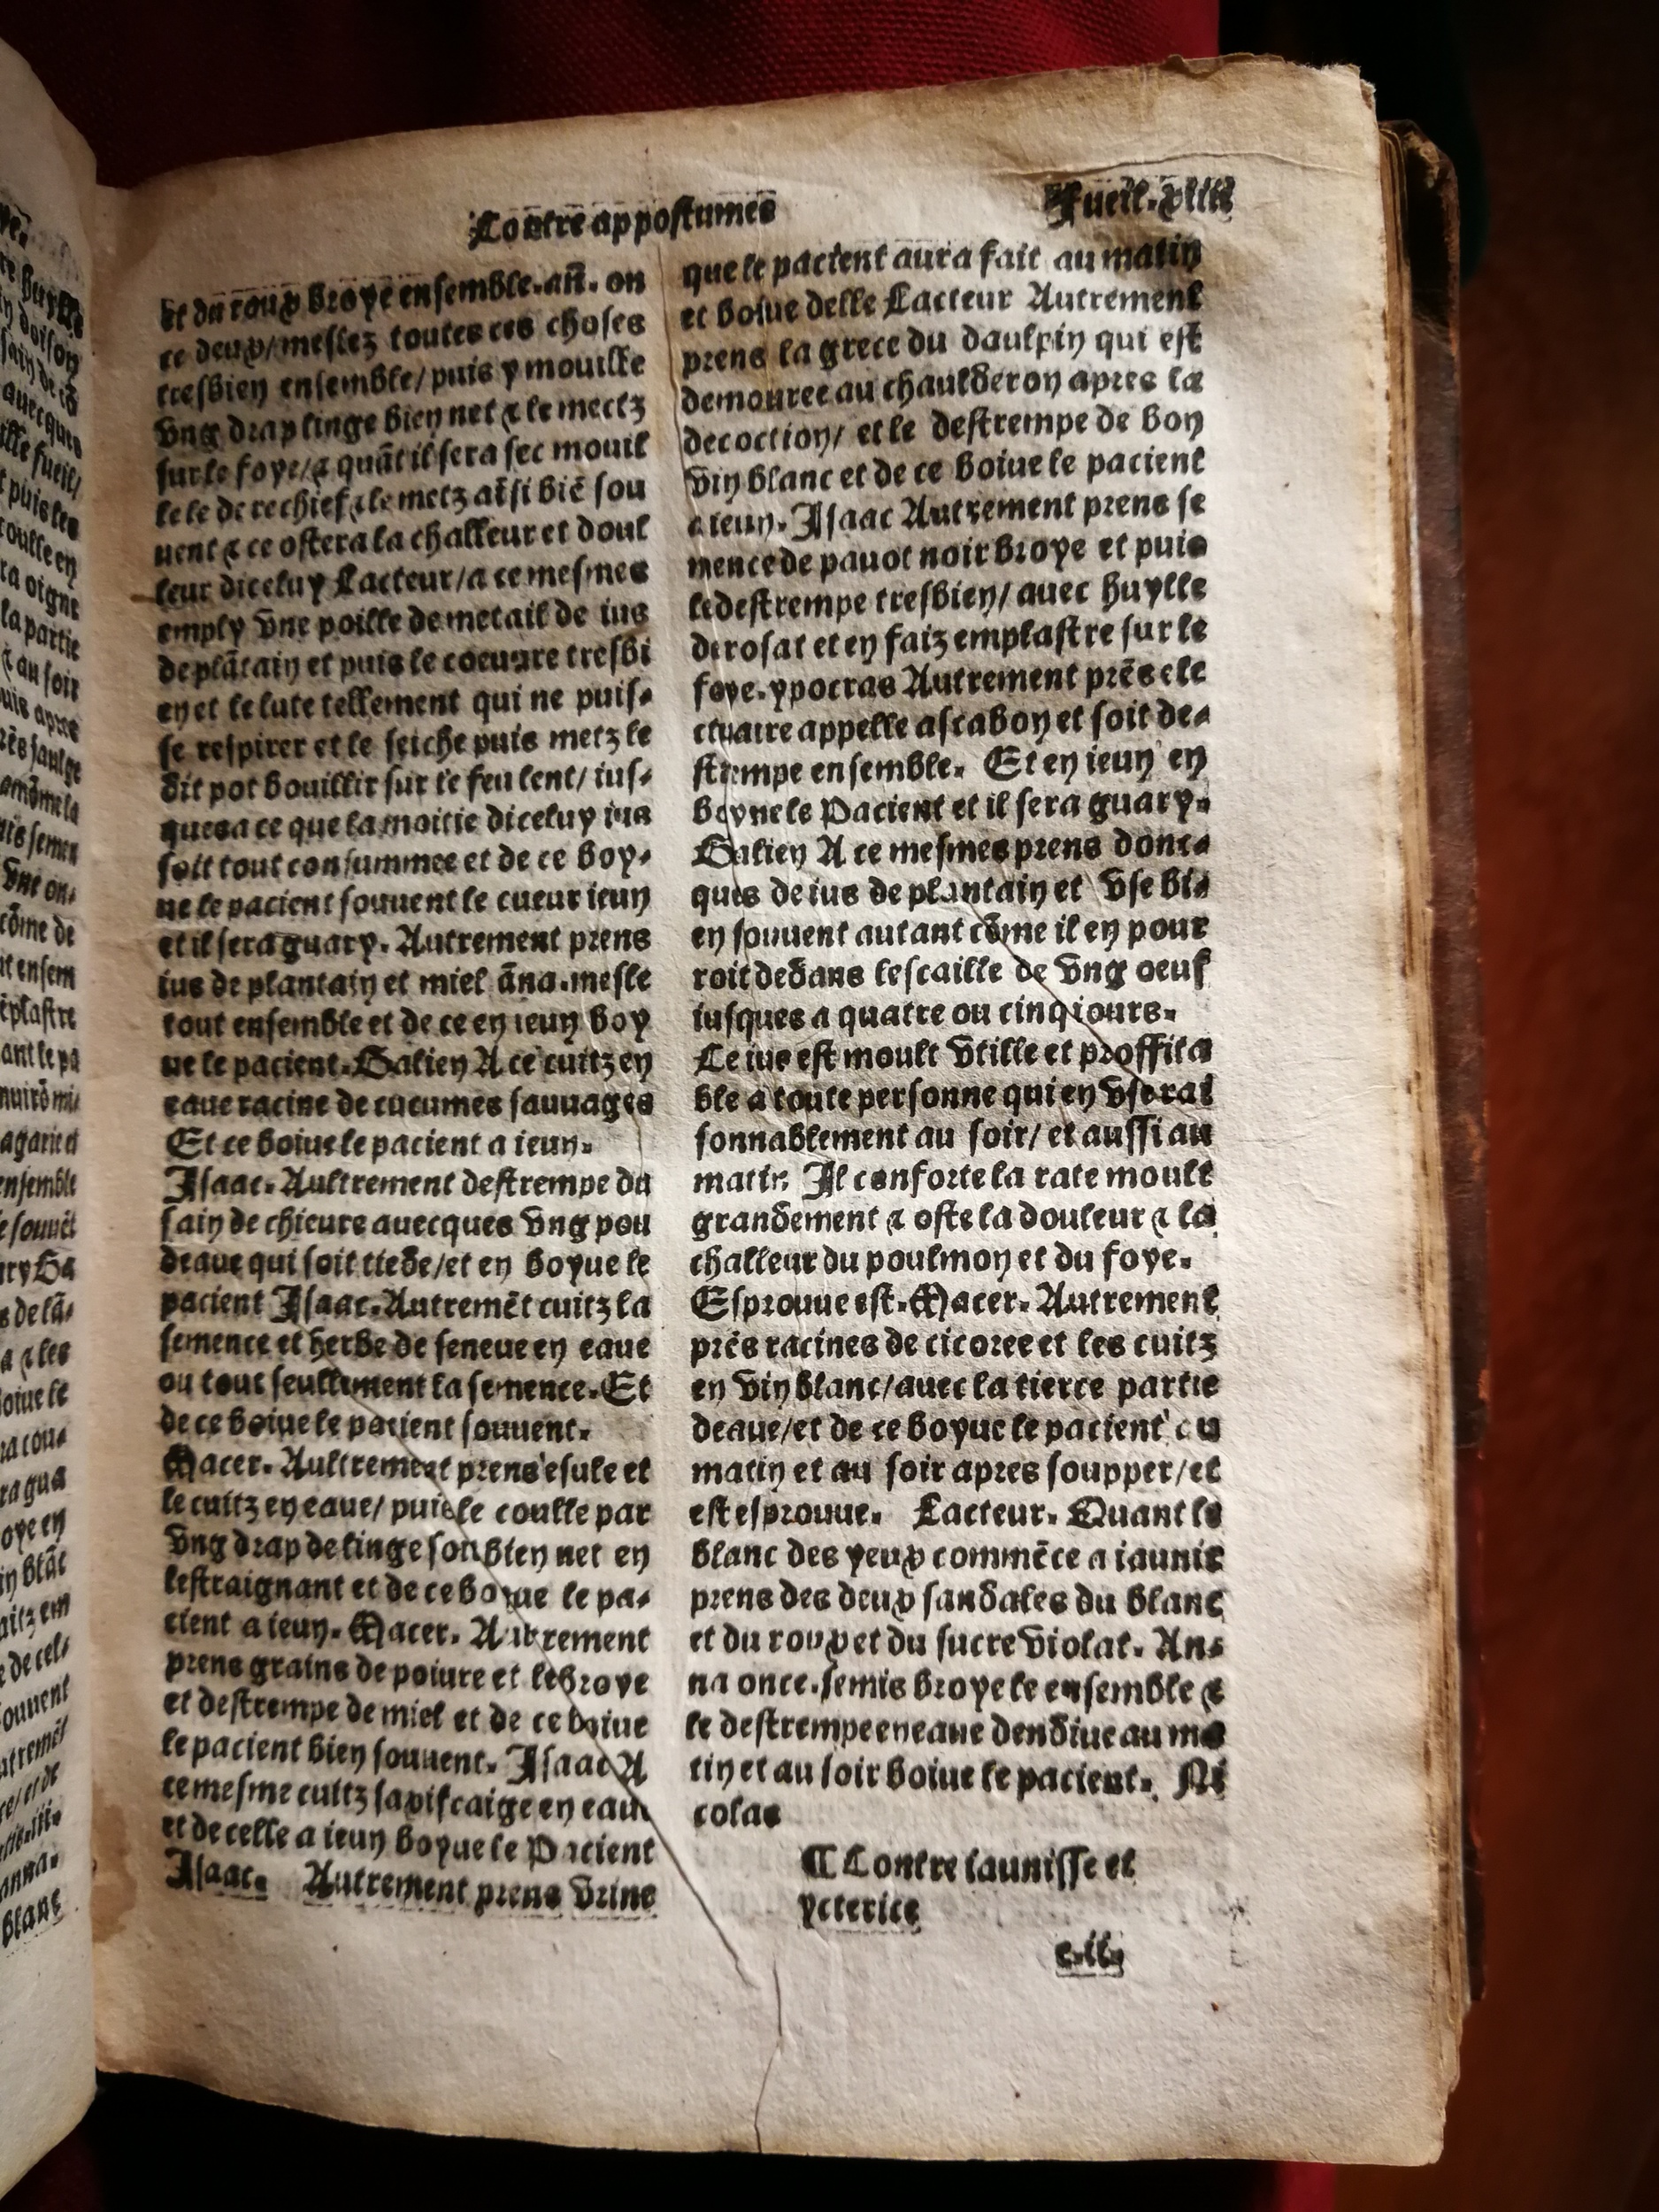 Contre appostumes
Fueil.xliii
et du roux broye ensemble.an̄. on
ce deux/meslez toutes ces choses
tresbien ensemble/puis y mouille
vng drap linge bien net & le mectz
sur le foye/& quāt il sera sec mouil
le le de rechief & le metz aīsi biē sou
uent & ce ostera la challeur et doul
leur diceluy Lacteur/a ce mesmes
emply vne poille de metail de ius
de plātain et puis le coeuure tresbi
en et le lute tellement qui ne puis-
se respirer et le seiche puis metz le
dit pot bouillir sur le feu lent/ius-
ques a ce que la moitie diceluy ius
soit tout consummee et de ce boy-
ue le pacient souuent le cueur ieun
et il sera guary. Autrement prens
ius de plantain et miel āna.mesle
tout ensemble et de ce en ieun boy
ue le pacient.Galien A ce cuitz en
eaue racine de cucumes sauuages
Et ce boiue le pacient a ieun.
Isaac. Aultrement destrempe du
sain de chieure auecques vng pou
deaue qui soit tiede/et en boyue le
pacient Isaac.Autremēt cuitz la
semence et herbe de seneue en eaue
ou tout seullement la semence.Et
de ce boiue le pacient souuent.
Macer. Aultrement prens esule et
le cuitz en eaue/puis le coulle par
vng drap de linge soubien net en
lestraignant et de ce boyue le pa-
cient a ieun. Macer. Autrement
prens grains de poiure et le broye
et destrempe de miel et de ce boiue
le pacient bien souuent. Isaac A
ce mesme cuitz saxifcaige en eaue
et de celle a ieun boyue le Pacient
Isaac. Autrement prens vrine
que le pacient aura fait au matin
et boiue delle Lacteur Autrement
prens la grece du daulpin qui est
demouree au chaulderon apres la
decoction/ et le destrempe de bon
vin blanc et de ce boiue le pacient
a ieun. Isaac Autrement prens se
mence de pauot noir broye et puis
le destrempe tresbien/ auec huylle
de rosat et en faiz emplastre sur le
foye. ypocras Autrement prēs ele
ctuaire appelle ascabon et soit de-
strempe ensemble. Et en ieun en
boyue le Pacient et il sera guary.
Galien A ce mesmes prens donc-
ques de ius de plantain et vse bi-
en souuent autant cōme il en pour
roit dedans lescaille de vng oeuf
iusques a quatre ou cinq iours.
Ce ius est moult vtille et proffita
ble a toute personne qui en vse rai
sonnablement au soir/ et aussi au
matin Il conforte la rate moult
grandement & oste la douleur & la
challeur du poulmon et du foye.
Esprouue est.Macer. Autrement
prēs racines de cicoree et les cuitz
en vin blanc/auec la tierce partie
deaue/et de ce boyue le pacient au
matin et au soir apres soupper/et
est esprouue. Lacteur. Quant le
blanc des yeux commēce a iaunir
prens des deux sandales du blanc
et du roux et du sucre violat. An-
na once.semis broye le ensemble &
le destrempe en eaue dendiue au ma
tin et au soir boiue le pacient. Ni
colas
¶ Contre iaunisse et
ycterice
c.ii.